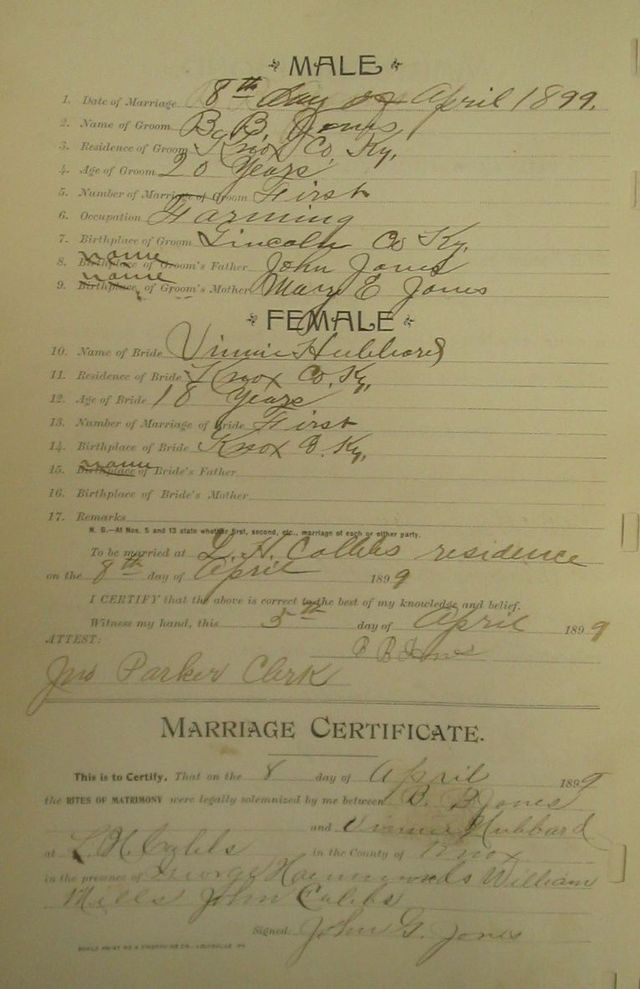 MALE
1. Date of Marriage 8th day of April 1899.
2. Name of Groom B. B. Jones
3. Residence of Groom Knox Co, Ky,
4. Age of Groom 20 Years
5. Number of Marriage of Groom First
6. Occupation Farming
7. Birthplace of Groom Lincoln Co Ky.
8. Birthplace name of Groom's Father John Jones
9. Birthplace name of Groom's Mother Mary E Jones
FEMALE
10. Name of Bride Vinnie Hubbard
11. Residence of Bride Knox Co, Ky,
12. Age of Bride 18 Years
13. Number of Marriage of Bride First
14. Birthplace of Bride Knox Ky,
15. Birthplace name of Bride's Father
16. Birthplace of Bride's Mother
17. Remarks
N. B.—At Nos. 5 and 13 state whether first, second, etc., marriage of each or either party.
To be married at L. H. residence
on the 8th day of April 1899
I CERTIFY that the above is correct to the best of my knowledge and belief.
Witness my hand, this 5th day of April 1899
ATTEST: B B Jones
Jno Parker Clerk
MARRIAGE CERTIFICATE.
This is to Certify, That on the 8 day of April 1899
the RITES OF MATRIMONY were legally solemnized by me between B. B Jones
and Vinnie Hubbard
at L. H. in the County of Knox
in the presence of George William
Mills John
Signed John G. Jones